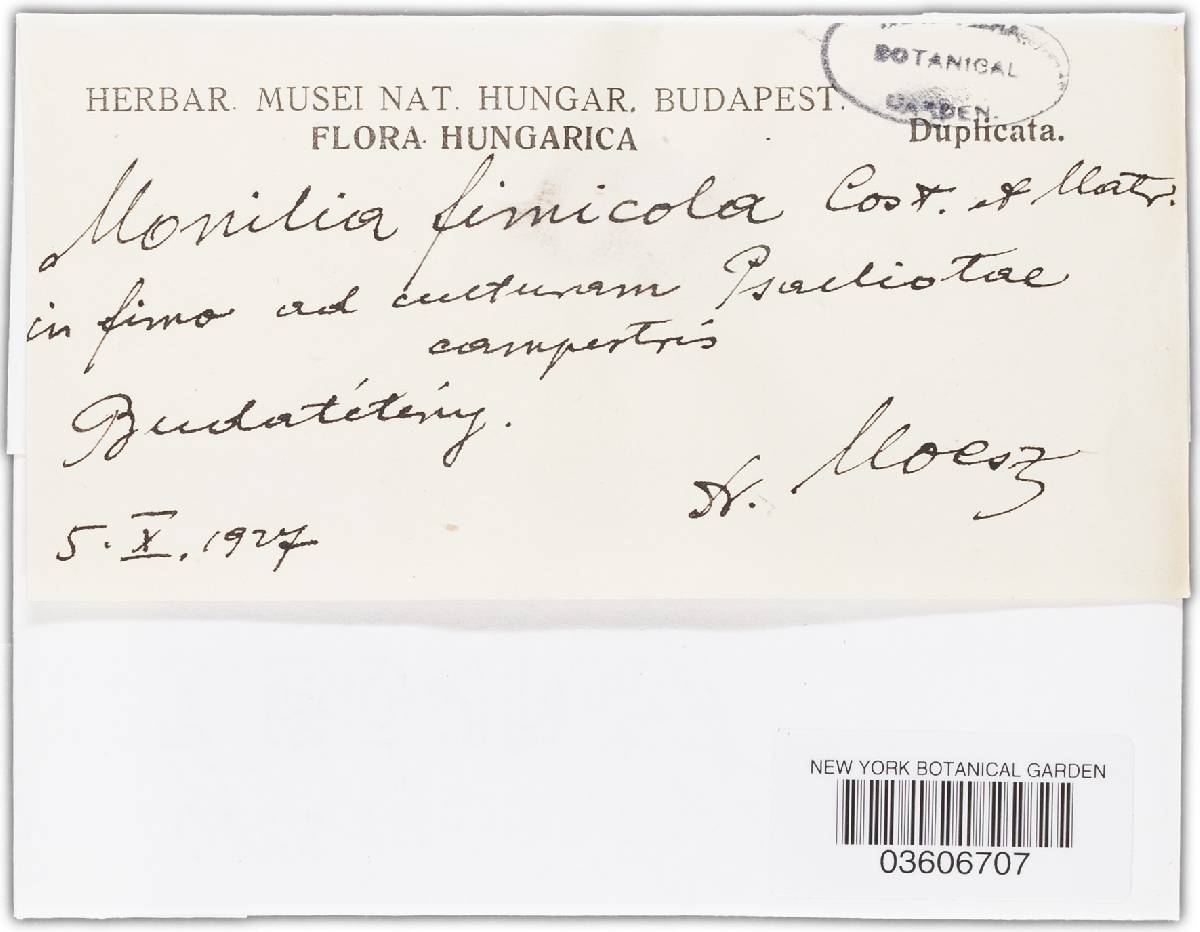 BOTANICAL
GARDEN.
HERBAR. MUSEI NAT. HUNGAR. BUDAPEST.
FLORA HUNGARICA
Duplicata.
Monilia fimicola Cost. et Matr.
in fimo ad culturam Psalliotae
campestris
Budatétény.
Moesz
5. X. 1927
NEW YORK BOTANICAL GARDEN
03606707